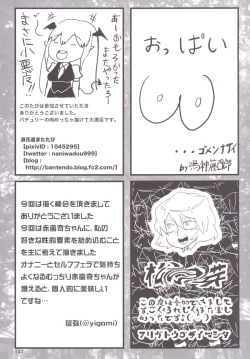 あーおもろかった
またやったろー
まさに小悪魔!!
このたびは参加させていただき
ありがとうございました。
パチュリーの肉めっちゃ描けて大満足です。
浪花道またたび
[pixivID : 1045295]
[twitter : naniwadou999]
[blog :
http://bantendo.blog.fc2.com/]
おっぱい
…ゴメンナサイ
by
今回は描く機会を頂きまして
ありがとうございました
今回の赤蛮奇ちゃんに、私の
好きな性的要素を詰め込むこと
を主に考えて描きました
オナニーとセルフフェラで気持
ちよくなるむっちり赤蛮奇ちゃんが
増えると、個人的に美味しい
ですね…
(@yigami)
この度は参加できまして
すごくうれしくほんと楽し
かったですっ
アリガトウゴザイマシタ
142